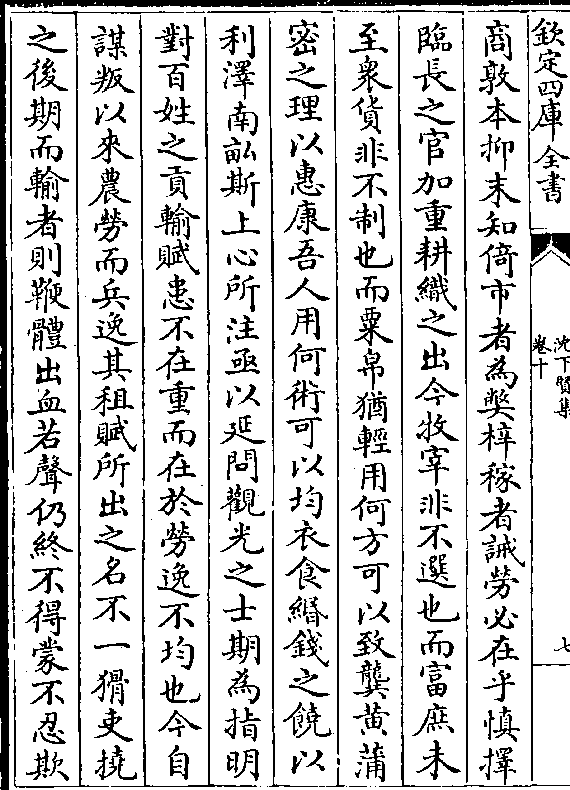 欽定四庫全書
沈下賢集
卷十
七
商敦本抑末知倚市者為獘梓稼者誠勞必在乎慎擇
臨長之官加重耕織之出今牧宰非不選也而富庶未
至衆貨非不制也而粟帛猶輕用何方可以致龔黄蒲
密之理以惠康吾人用何術可以均衣食緡錢之饒以
利澤南畝斯上心所注亟以延問觀光之士期為指明
對百姓之貢輸賦患不在重而在於勞逸不均也今自
謀叛以來農勞而兵逸其租賦所出之名不一猾吏撓
之後期而輸者則鞭體出血若聲仍終不得蒙不忍欺